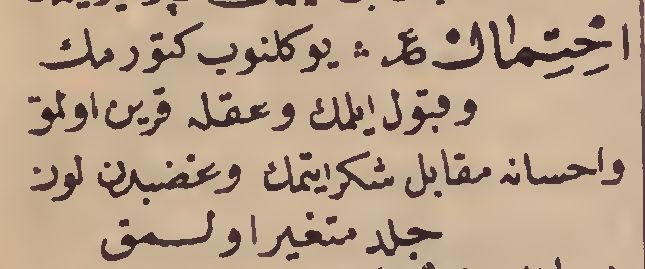 احْتِمَال ع يوكلنوب كتورمك
وقبول ايلمك وعقله قرين اولمق
واحسانه مقابل شكر ايتمك وغضبدن لون
جلد متغير اولمق